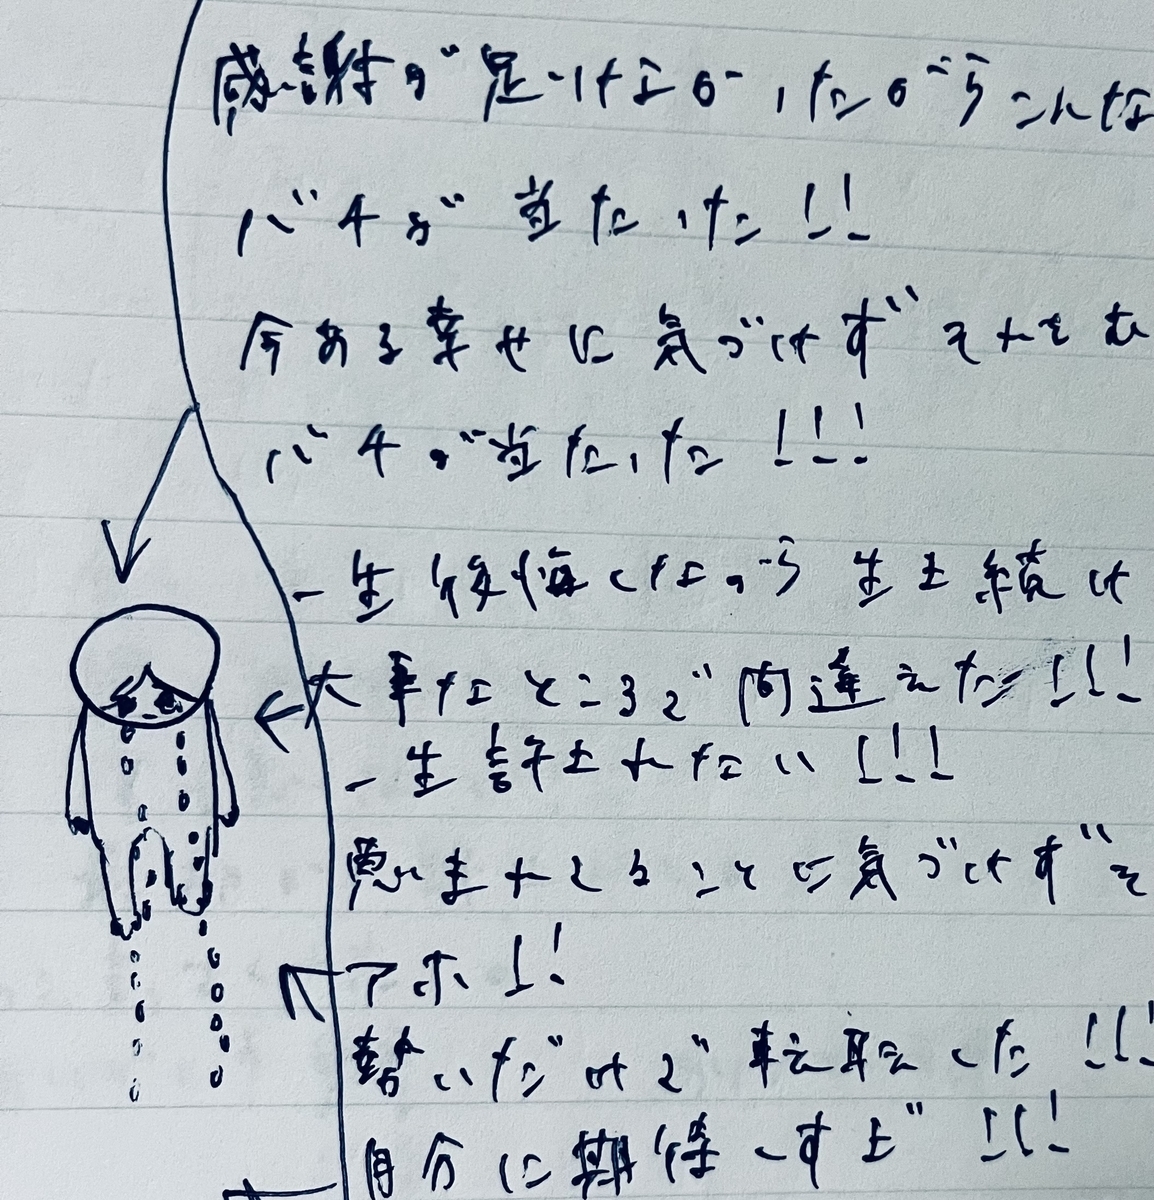 感謝が足りなかったからこんな
バチが当たった!!
今ある幸せに気づけずそれを
バチが当たった!!!
一生後悔しながら生き続け
大事なところで間違えた!!!
一生許されない!!!
恵まれてることに気づけずそ
アホ!!
勢いだけで転職した!!!
自分に期待しすぎ!!!